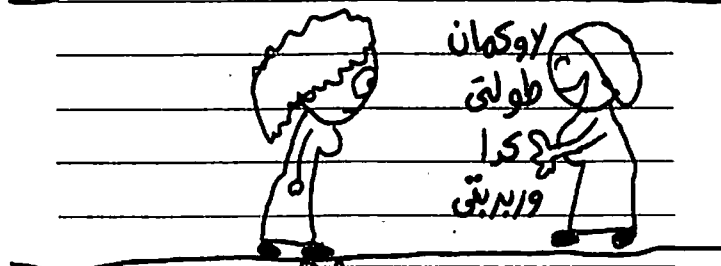 لا وكمان
طولتي
كدا
وربربتي